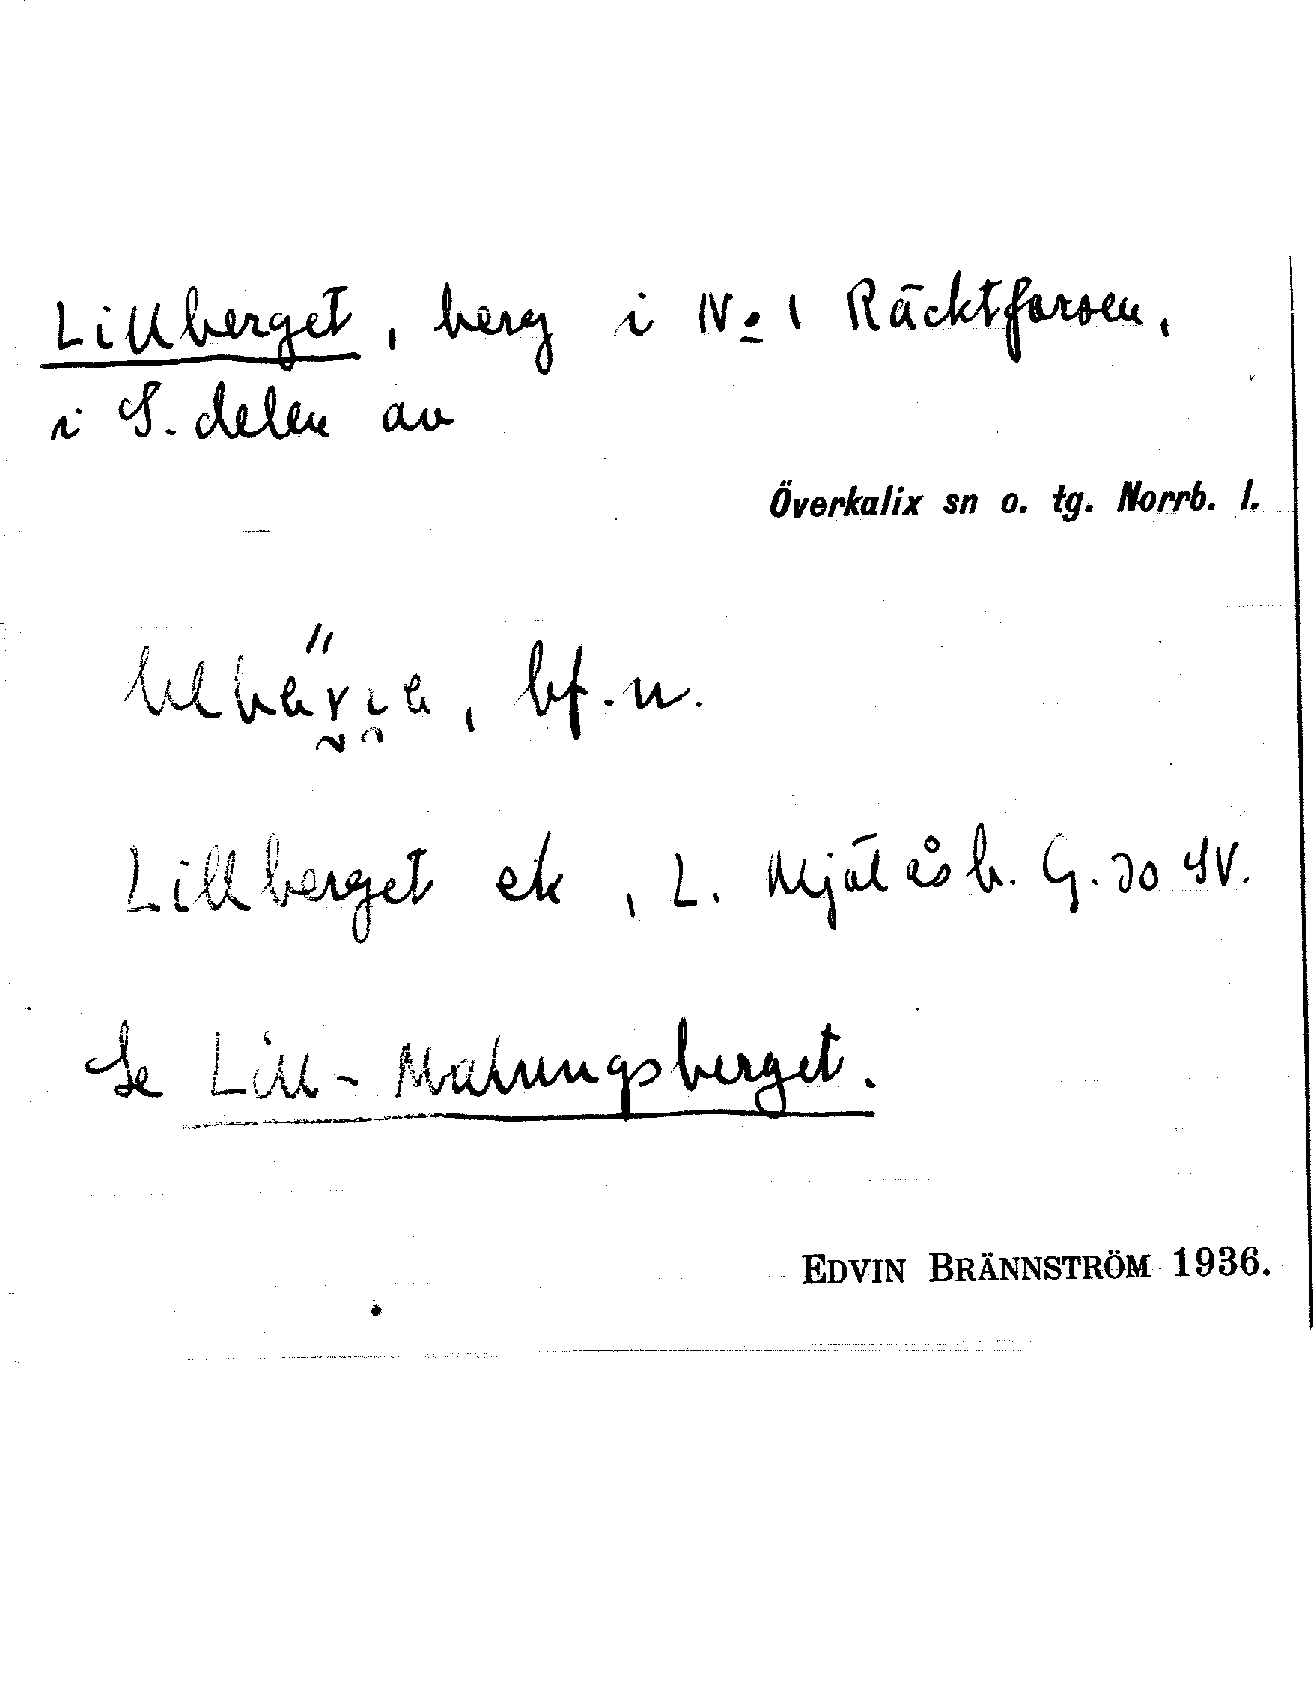 Lillberget, berg i No 1 Räcktforsen,
i S. delen av
Överkalix sn o. tg. Norrb. l.
, bf. n.
Lillberget ek, L. Mjölåsb. G. do SV.
Se Lill-Malungsberget.
EDVIN BRÄNNSTRÖM 1936.